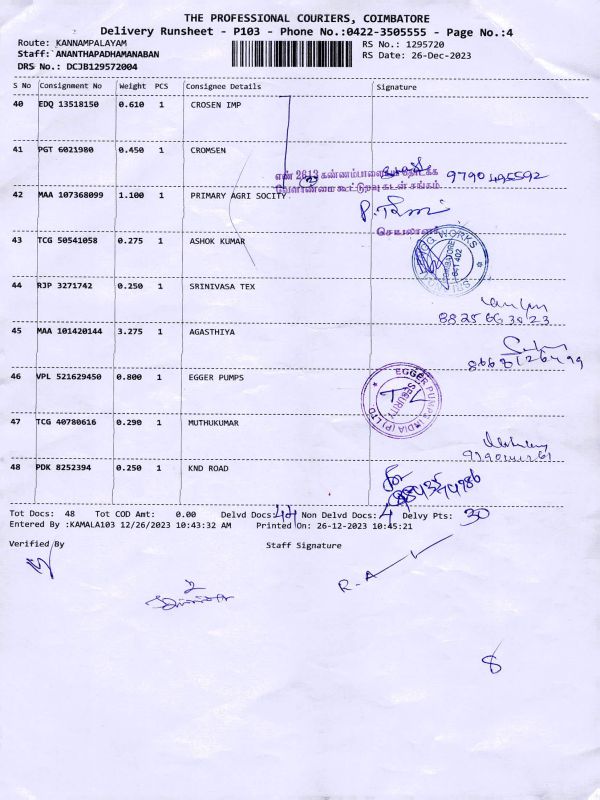 THE PROFESSIONAL COURIERS, COIMBATORE
Delivery Runsheet - P103 - Phone No.:0422-3505555 - Page No.:4
Route: KANNAMPALAYAM
RS No.: 1295720
Staff: ANANTHAPADHAMANABAN
RS Date: 26-Dec-2023
DRS No.: DCJB129572004
S No Consignment No Weight PCS Consignee Details Signature
40 EDQ 13518150 0.610 1 CROSEN IMP
41 PGT 6021980 0.450 1 CROMSEN
எண் 2613 கண்ணம்பாளையம் தொடக்க
9790495592
வேளாண்மை கூட்டுறவு கடன் சங்கம்
42 MAA 107368099 1.100 1 PRIMARY AGRI SOCITY
செயலாளர்
43 TCG 50541058 0.275 1 ASHOK KUMAR
44 RJP 3271742 0.250 1 SRINIVASA TEX
45 MAA 101420144 3.275 1 AGASTHIYA
46 VPL 521629450 0.800 1 EGGER PUMPS
EGGER PUMPS INDIA (P) LTD.
SECURITY
47 TCG 40780616 0.290 1 MUTHUKUMAR
48 PDK 8252394 0.250 1 KND ROAD
Tot Docs: 48 Tot COD Amt: 0.00 Delvd Docs: 44 Non Delvd Docs: 4 Delvy Pts: 30
Entered By :KAMALA103 12/26/2023 10:43:32 AM Printed On: 26-12-2023 10:45:21
Verified By Staff Signature
R.A
8